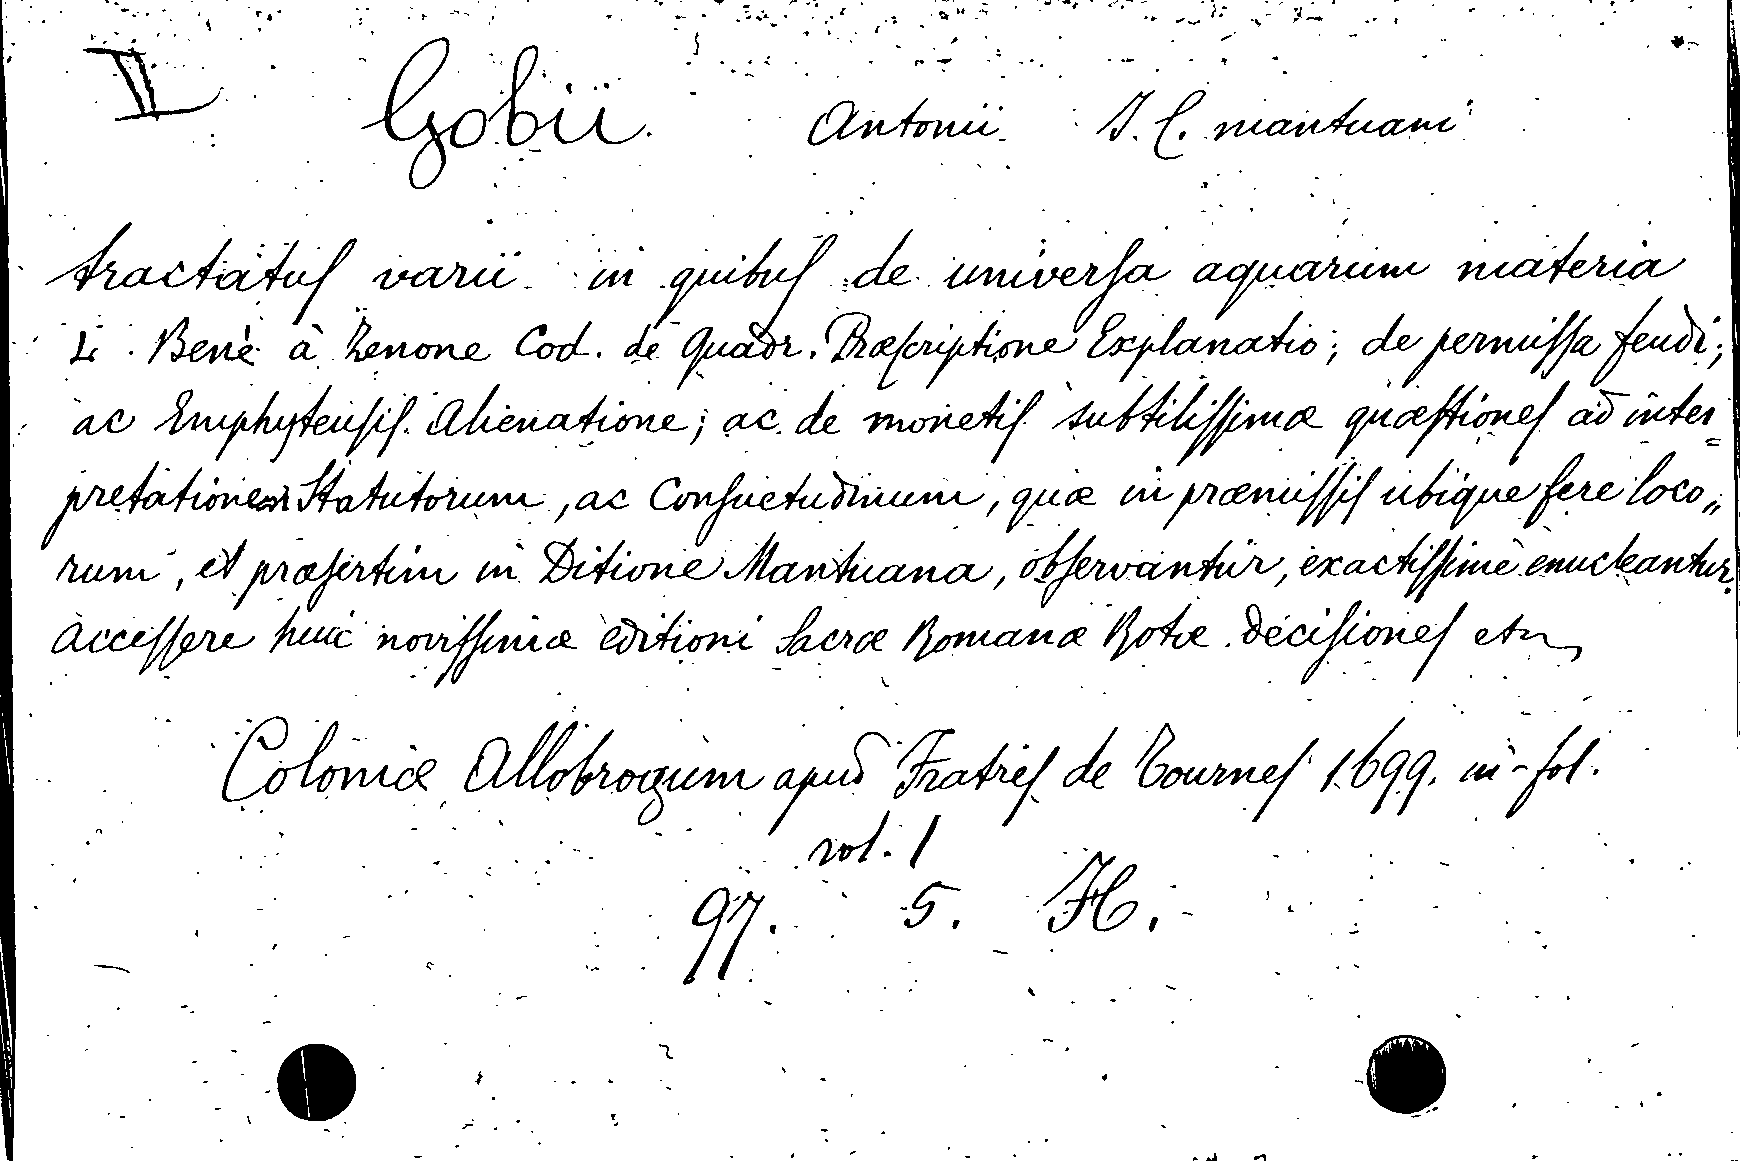 II Gobii. Antonii J. C. mantuani
tractatuſ varii in quibuſ de univerſa aquarum materia
L. Benè à Zenone Cod. de Quadr. Præſcriptione Explanatio; de permiſſa feudi;
ac Emphyteuſiſ Alienatione; ac de monetiſ subtiliſſimæ quæſtioneſ ad inter=
pretationem Statutorum, ac Conſuetudinum, quæ in præmiſſiſ ubique fere loco„
rum, et præſertim in Ditione Mantuana, obſervantur, exactiſſimè enucleantur.
Acceſſere huic noviſſimæ editioni Sacræ Romanæ Rotæ deciſioneſ etc
Coloniæ Allobrogum apud Fratreſ de Tourneſ 1699. in-fol.
vol. 1
97. 5. H.